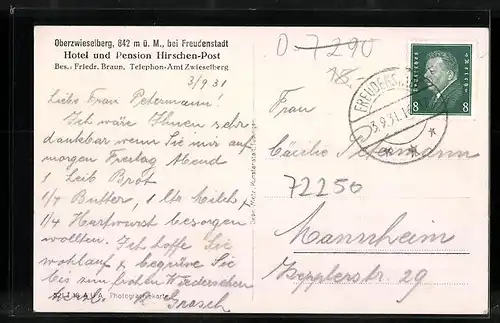 Oberzwieselberg, 842 m ü. M., bei Freudenstadt
Hotel und Pension Hirschen-Post
Bes.: Friedr. Braun. Telephon-Amt Zwieselberg
3/9 31
Liebe Frau Petermann!
Ich wäre Ihnen sehr
dankbar wenn Sie mir auf
morgen Freitag Abend
1 Leib Brot
1/4 Butter, 1 ltr Milch
1/4 Hartwurst besorgen
wollten. Ich hoffe Sie
wohlauf & begrüsse Sie
bis zum frohen Wiedersehen
Photographiekarte
D-7290
18.-
FREUDENS
3.9.31.1
8 8
Frau
Cäcilie Petermann
72250
Mannheim
29